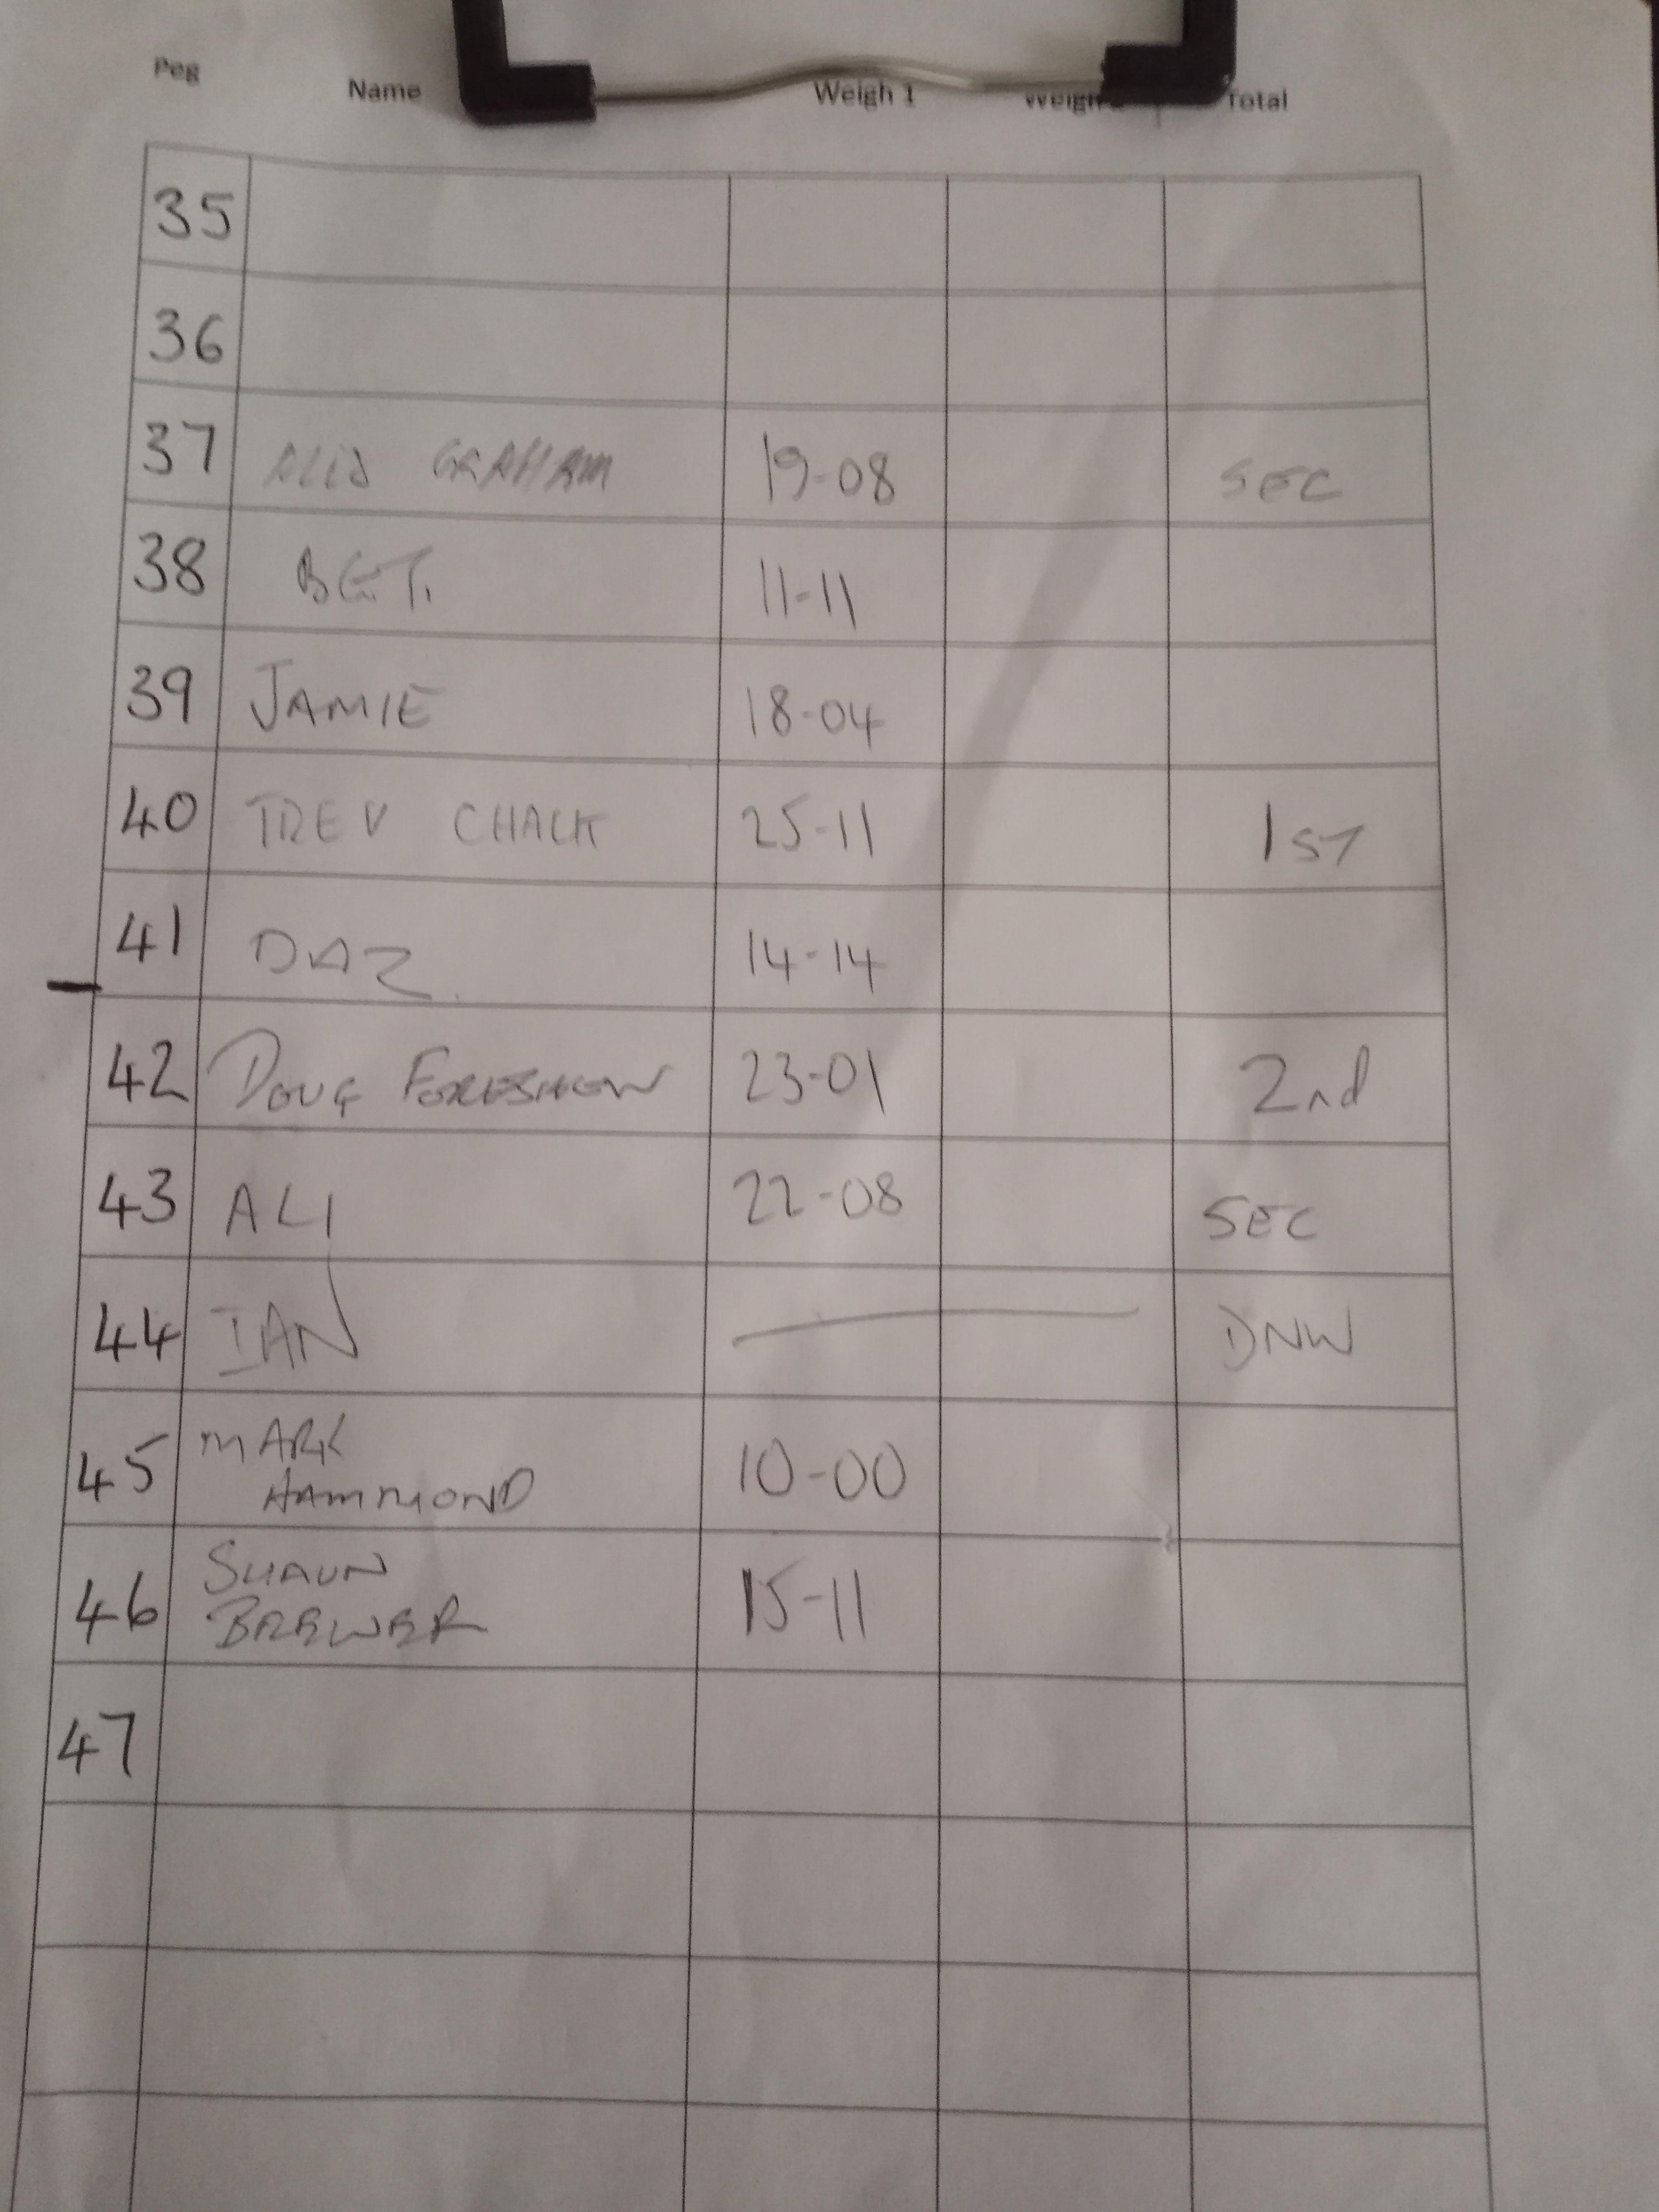 Peg Name Weigh 1 Weigh Total
35
36
37 GRAHAM 19-08 SEC
38 B.G.T. 11-11
39 JAMIE 18-04
40 TREV CHALK 25-11 1ST
41 DAZ 14-14
42 DOUG FORESHEW 23-01 2nd
43 ALI 22-08 SEC
44 IAN DNW
45 MARK
HAMMOND 10-00
46 SHAUN
BREWER 15-11
47